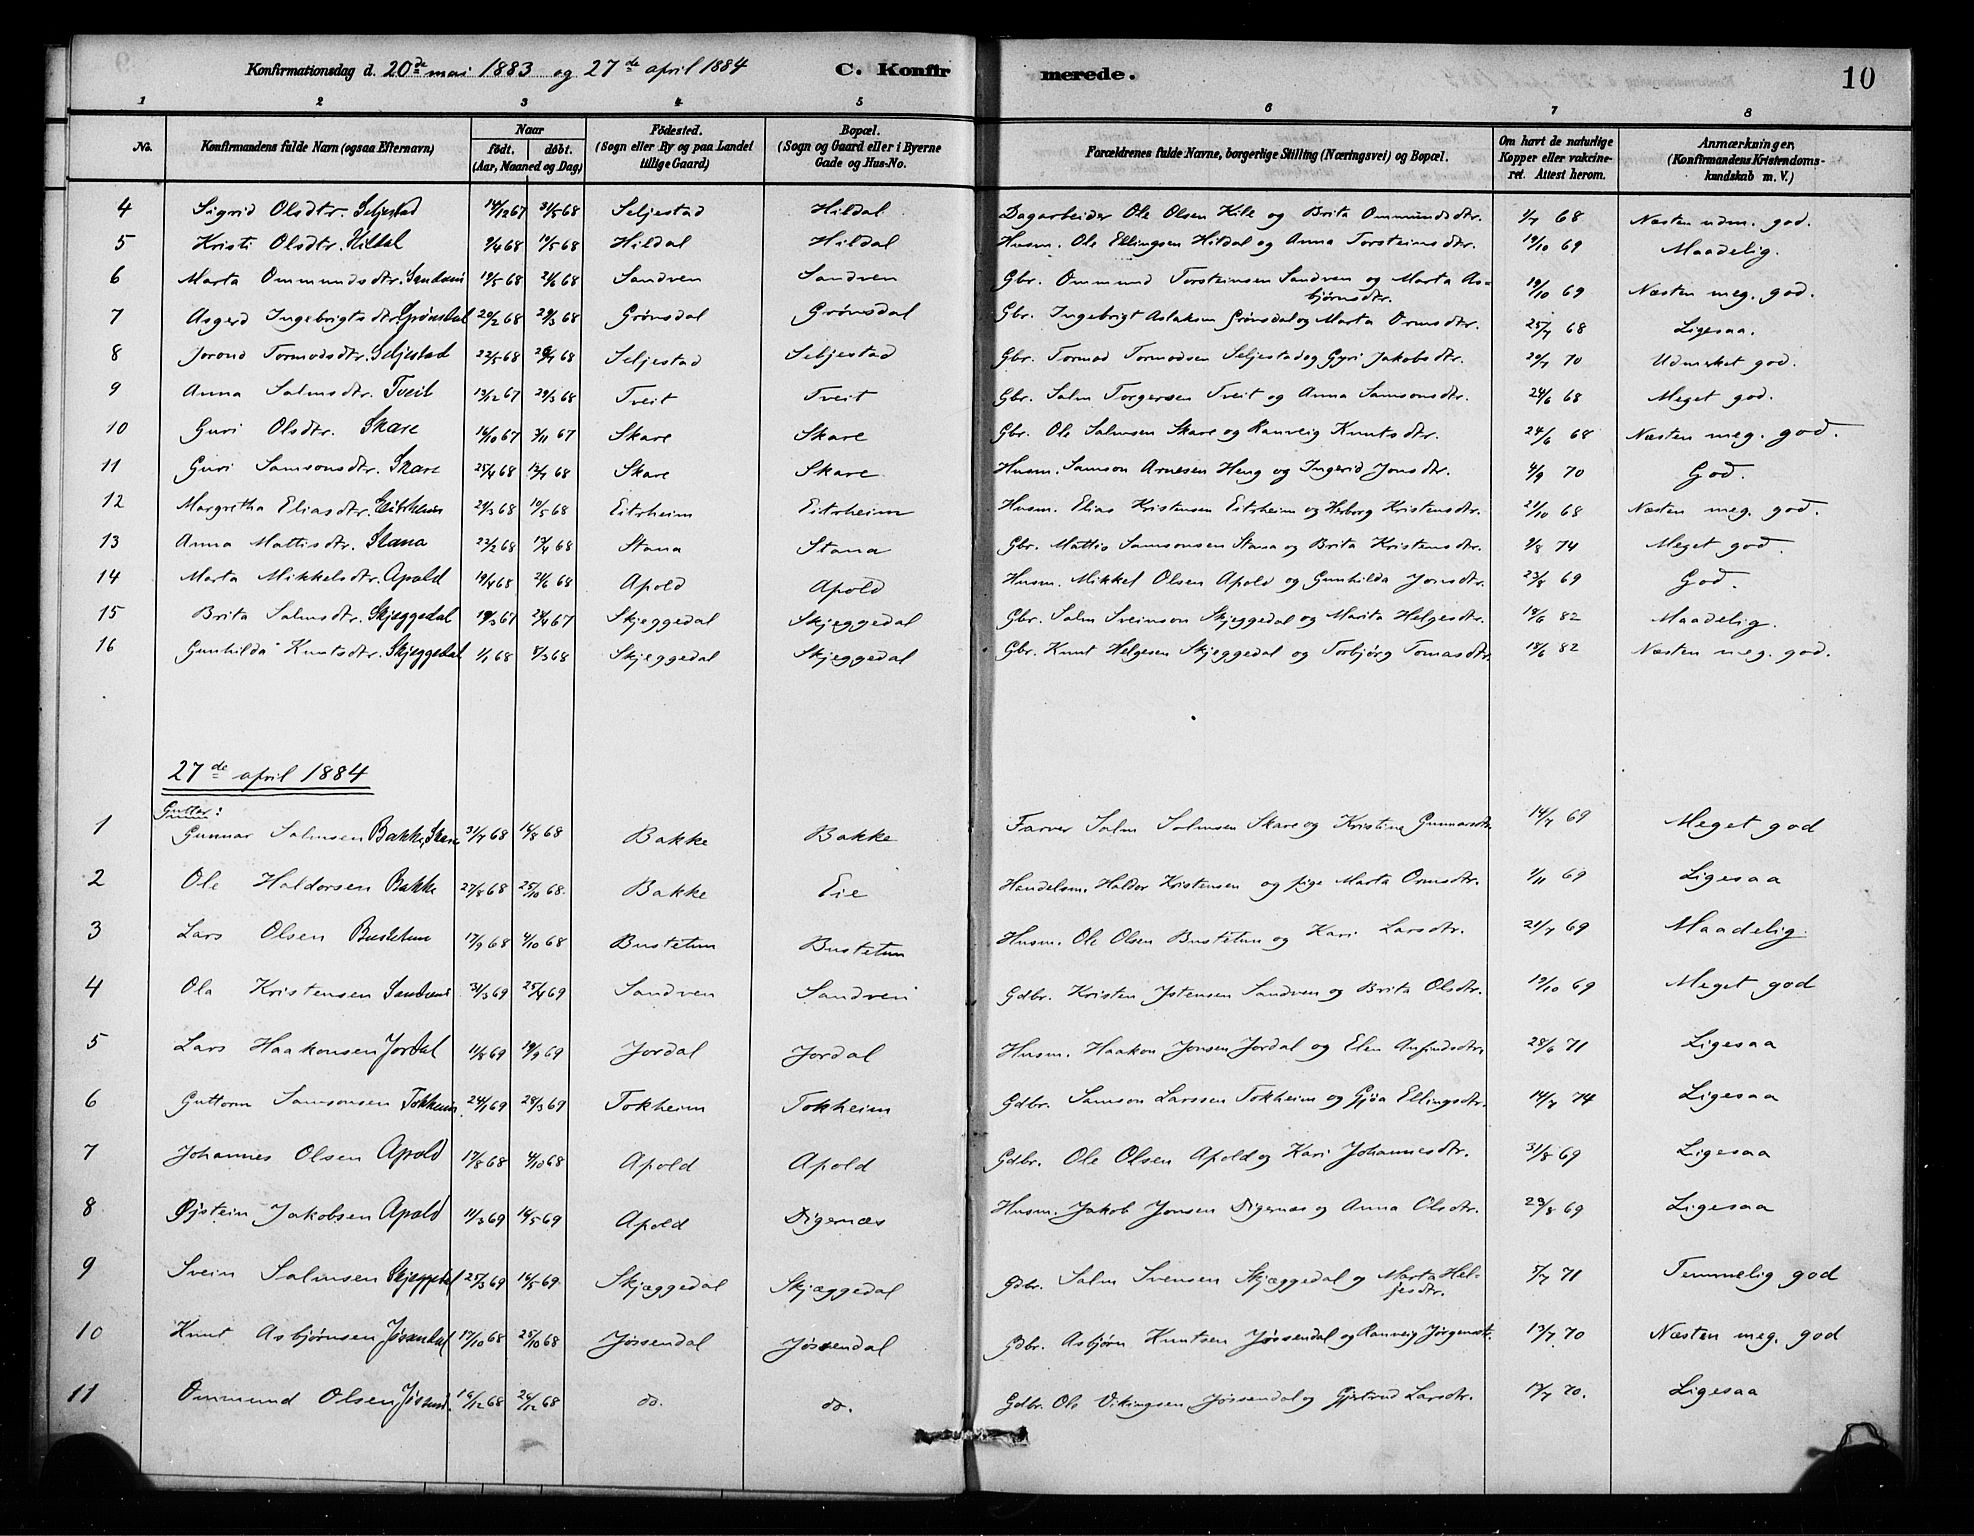 Konfirmationsdag d. 20de mai 1883 og 27de april 1884 C. Konfirmerede. 10
1 2 3 4 5 6 7 8
No. Konfirmandens fulde Navn (ogsaa Efternavn). Naar født. døbt. (Aar, Maaned og Dag) Fødested. (Sogn eller By og paa Landet tillige Gaard) Bopæl. (Sogn og Gaard eller i Byerne Gade og Hus-No. Forældrenes fulde Navne, borgerlige Stilling (Næringsvei) og Bopæl. Om havt de naturlige Kopper eller vakcineret. Attest herom. Anmærkninger. (Konfirmandens Kristendomskundskab m. V.)
4 Sigrid Olsdtr. Seljestad 14/12 67 31/5 68 Seljestad Hildal Dagarbeider Ole Olsen Kile og Brita Ommundsdtr. 1/7 68 Næsten udm. god.
5 Kristi Olsdtr. Hildal 9/4 68 19/5 68 Hildal Hildal Husm. Ole Ellingsen Hildal og Anna Torsteinsdtr. 19/10 69 Maadelig.
6 Marta Ommundsdtr. Sandven 19/5 68 21/6 68 Sandven Sandven Gbr. Ommund Torsteinsen Sandven og Marta Asbjørnsdtr. 19/10 69 Næsten meg. god.
7 Asgerd Ingebrigtsdtr. Grønsdal 20/2 68 29/3 68 Grønsdal Grønsdal Gbr. Ingebrigt Aslaksen Grønsdal og Marta Ormsdtr. 25/7 68 Ligesaa.
8 Jorond Tormodsdtr. Seljestad 22/5 68 68 Seljestad Seljestad Gbr. Tormod Tormodsen Seljestad og Gyri Jakobsdtr. 20/7 70 Udmerket god.
9 Anna Salmsdtr. Tveit 13/12 67 29/3 68 Tveit Tveit Gbr. Salm Torgersen Tveit og Anna Samsonsdtr. 24/6 68 Meget god.
10 Guri Olsdtr. Skare 16/10 67 3/11 67 Skare Skare Gbr. Ole Salmsen Skare og Ranveig Knutsdtr. 24/6 68 Næsten meg. god.
11 Guri Samsonsdtr. Skare 25/4 68 12/7 68 Skare Skare Husm. Samson Arnesen Heng og Ingerid Jonsdtr. 4/9 70 God.
12 Margretha Eliasdtr. Eitrheim 24/3 68 10/5 68 Eitrheim Eitrheim Husm. Elias Kristensen Eitrheim og Herborg Kristensdtr. 21/10 68 Næsten meg. god.
13 Anna Mattisdtr. Stana 22/2 68 13/4 68 Stana Stana Gbr. Mattis Samsonsen Stana og Brita Kristensdtr. 9/8 74 Meget god.
14 Marta Mikkelsdtr. Apold 19/4 68 21/6 68 Apold Apold Husm. Mikkel Olsen Apold og Gunhilda Jonsdtr. 23/8 69 God.
15 Brita Salmsdtr. Skjæggedal 19/3 67 24/4 67 Skjeggedal Skjeggedal Gbr. Salm Sveinson Skjeggedal og Marita Helgesdtr. 18/6 82 Maadelig.
16 Gunhilda Knutsdtr. Skjeggedal 1/1 68 8/3 68 Skjeggedal Skjeggedal Gbr. Knut Helgesen Skjeggedal og Torbjørg Tomasdtr. 18/6 82 Næsten meg. god.
27de april 1884
Gutter:
1 Gunnar Salmsen Bakke, Skare 31/7 68 16/8 68 Bakke Bakke Farver Salm Salmsen Skare og Kristine Gunnarsdtr. 14/7 69 Meget god
2 Ole Haldorsen Bakke 27/8 68 25/10 68. Bakke Eie Handelsm. Haldor Kristensen og pige Marta Ormsdtr. 1/11 69 Ligesaa
3 Lars Olsen Bustetun 17/9 68 4/10 68 Bustetun Bustetun Husm. Ole Olsen Bustetun og Kari Larsdtr. 21/7 69 Maadelig.
4 Ola Kristensen Sandven 31/3 69 25/4 69 Sandven Sandven Gdbr. Kristen Jstensen Sandven og Brita Olsdtr. 19/10 69 Meget god
5 Lars Haakonsen Jordal 11/8 69 19/9 69 Jordal Jordal Husm. Haakon Jonsen Jordal og Elen Anfindsdtr. 28/6 71 Ligesaa
6 Guttorm Samsonsen Tokheim 24/1 69 28/3 69 Tokheim Tokheim Gdbr. Samson Larssen Tokheim og Gjøa Ellingsdtr. 14/7 74 Ligesaa
7 Johannes Olsen Apold 17/8 68 4/10 68 Apold Apold Gdbr. Ole Olsen Apold og Kari Johannesdtr. 31/8 69 Ligesaa
8 Øjstein Jakobsen Apold 11/3 69 16/5 69 Apold Digernæs Husm. Jakob Jonsen Digernæs og Anna Olsdtr. 23/8 69 Ligesaa
9 Svein Salmsen Skjæggedal 25/3 69 16/5 69. Skjæggedal Skjæggedal Gdbr. Salm Svensen Skjæggedal og Marta Helgesdtr. 5/7 71 Temmelig god
10 Knut Asbjørnsen Jøssendal 17/10 68 25/10 68 Jøssendal Jøssendal Gdbr. Asbjørn Knutsen Jøssendal og Ranveig Jørgensdtr. 13/7 70 Næsten meg. god
11 Ommund Olsen Jøssend. 16/12 68 26/12 68 do. do. Gdbr. Ole Vikingsen Jøssendal og Gjertrud Larsdtr. 13/7 70. Ligesaa